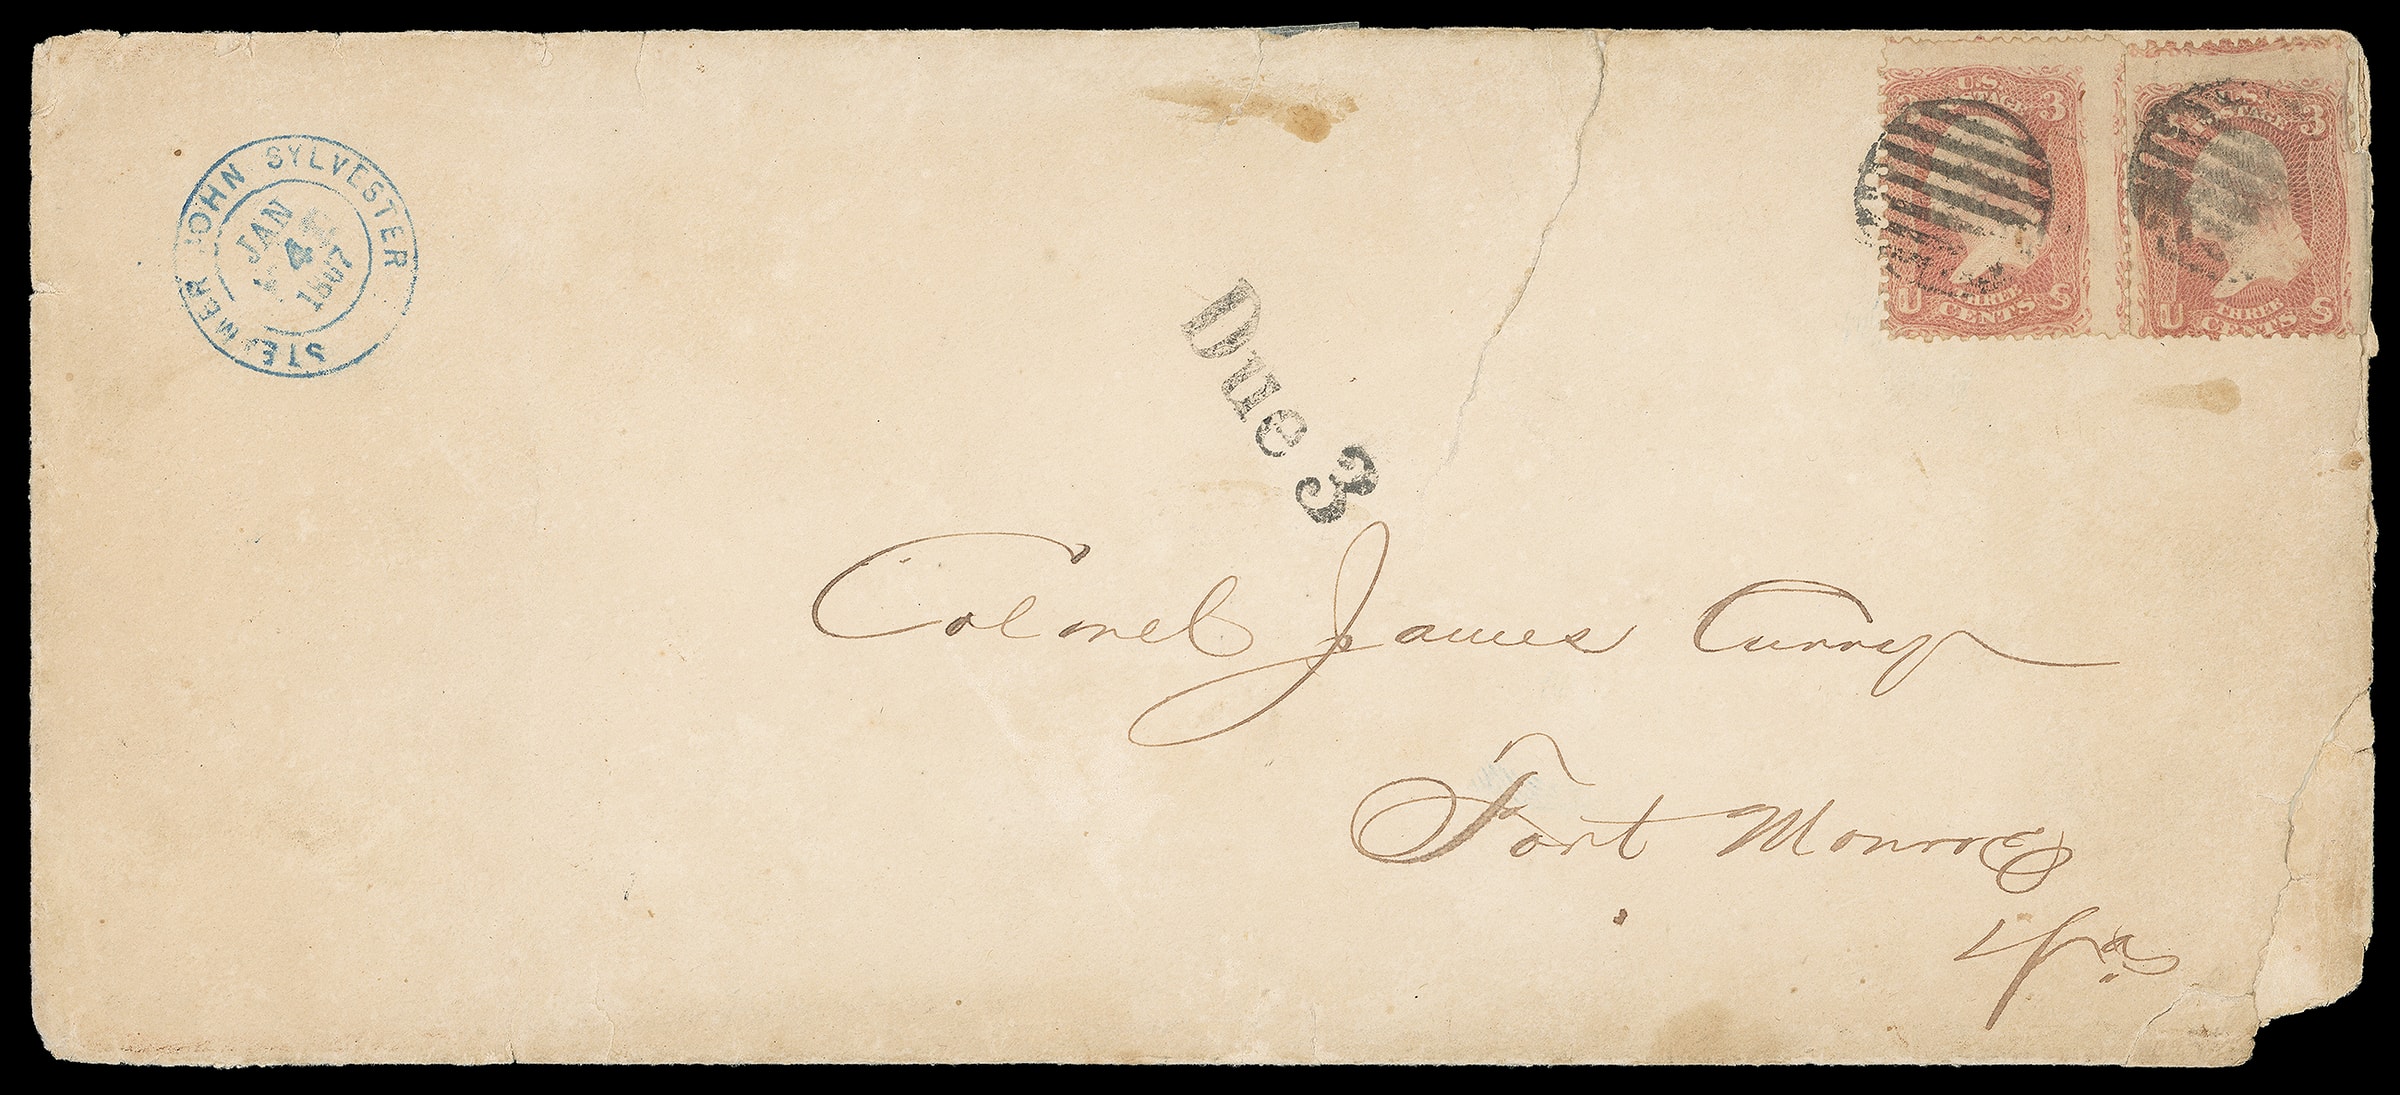 STEAMER JOHN SYLVESTER
JAN
4
1867
U.S. POSTAGE 3
THREE
U CENTS S
U.S. POSTAGE 3
THREE
U CENTS S
Due 3
Colonel James Curry
Fort Monroe
Va